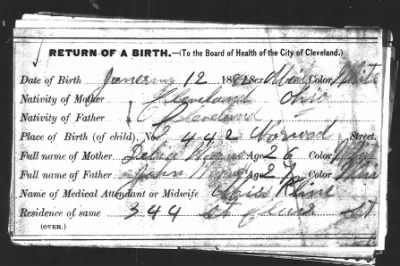 RETURN OF A BIRTH.—(To the Board of Health of the City of Cleveland.)
Date of Birth 12 188 Sex Color White
Nativity of Mother Cleveland Ohio
Nativity of Father Cleveland
Place of Birth (of child), No 2442 Norwood Street.
Full name of Mother Delia Age 26 Color
Full name of Father John Age Color
Name of Medical Attendant or Midwife Kline
Residence of same 344 St Clair St
(OVER.)